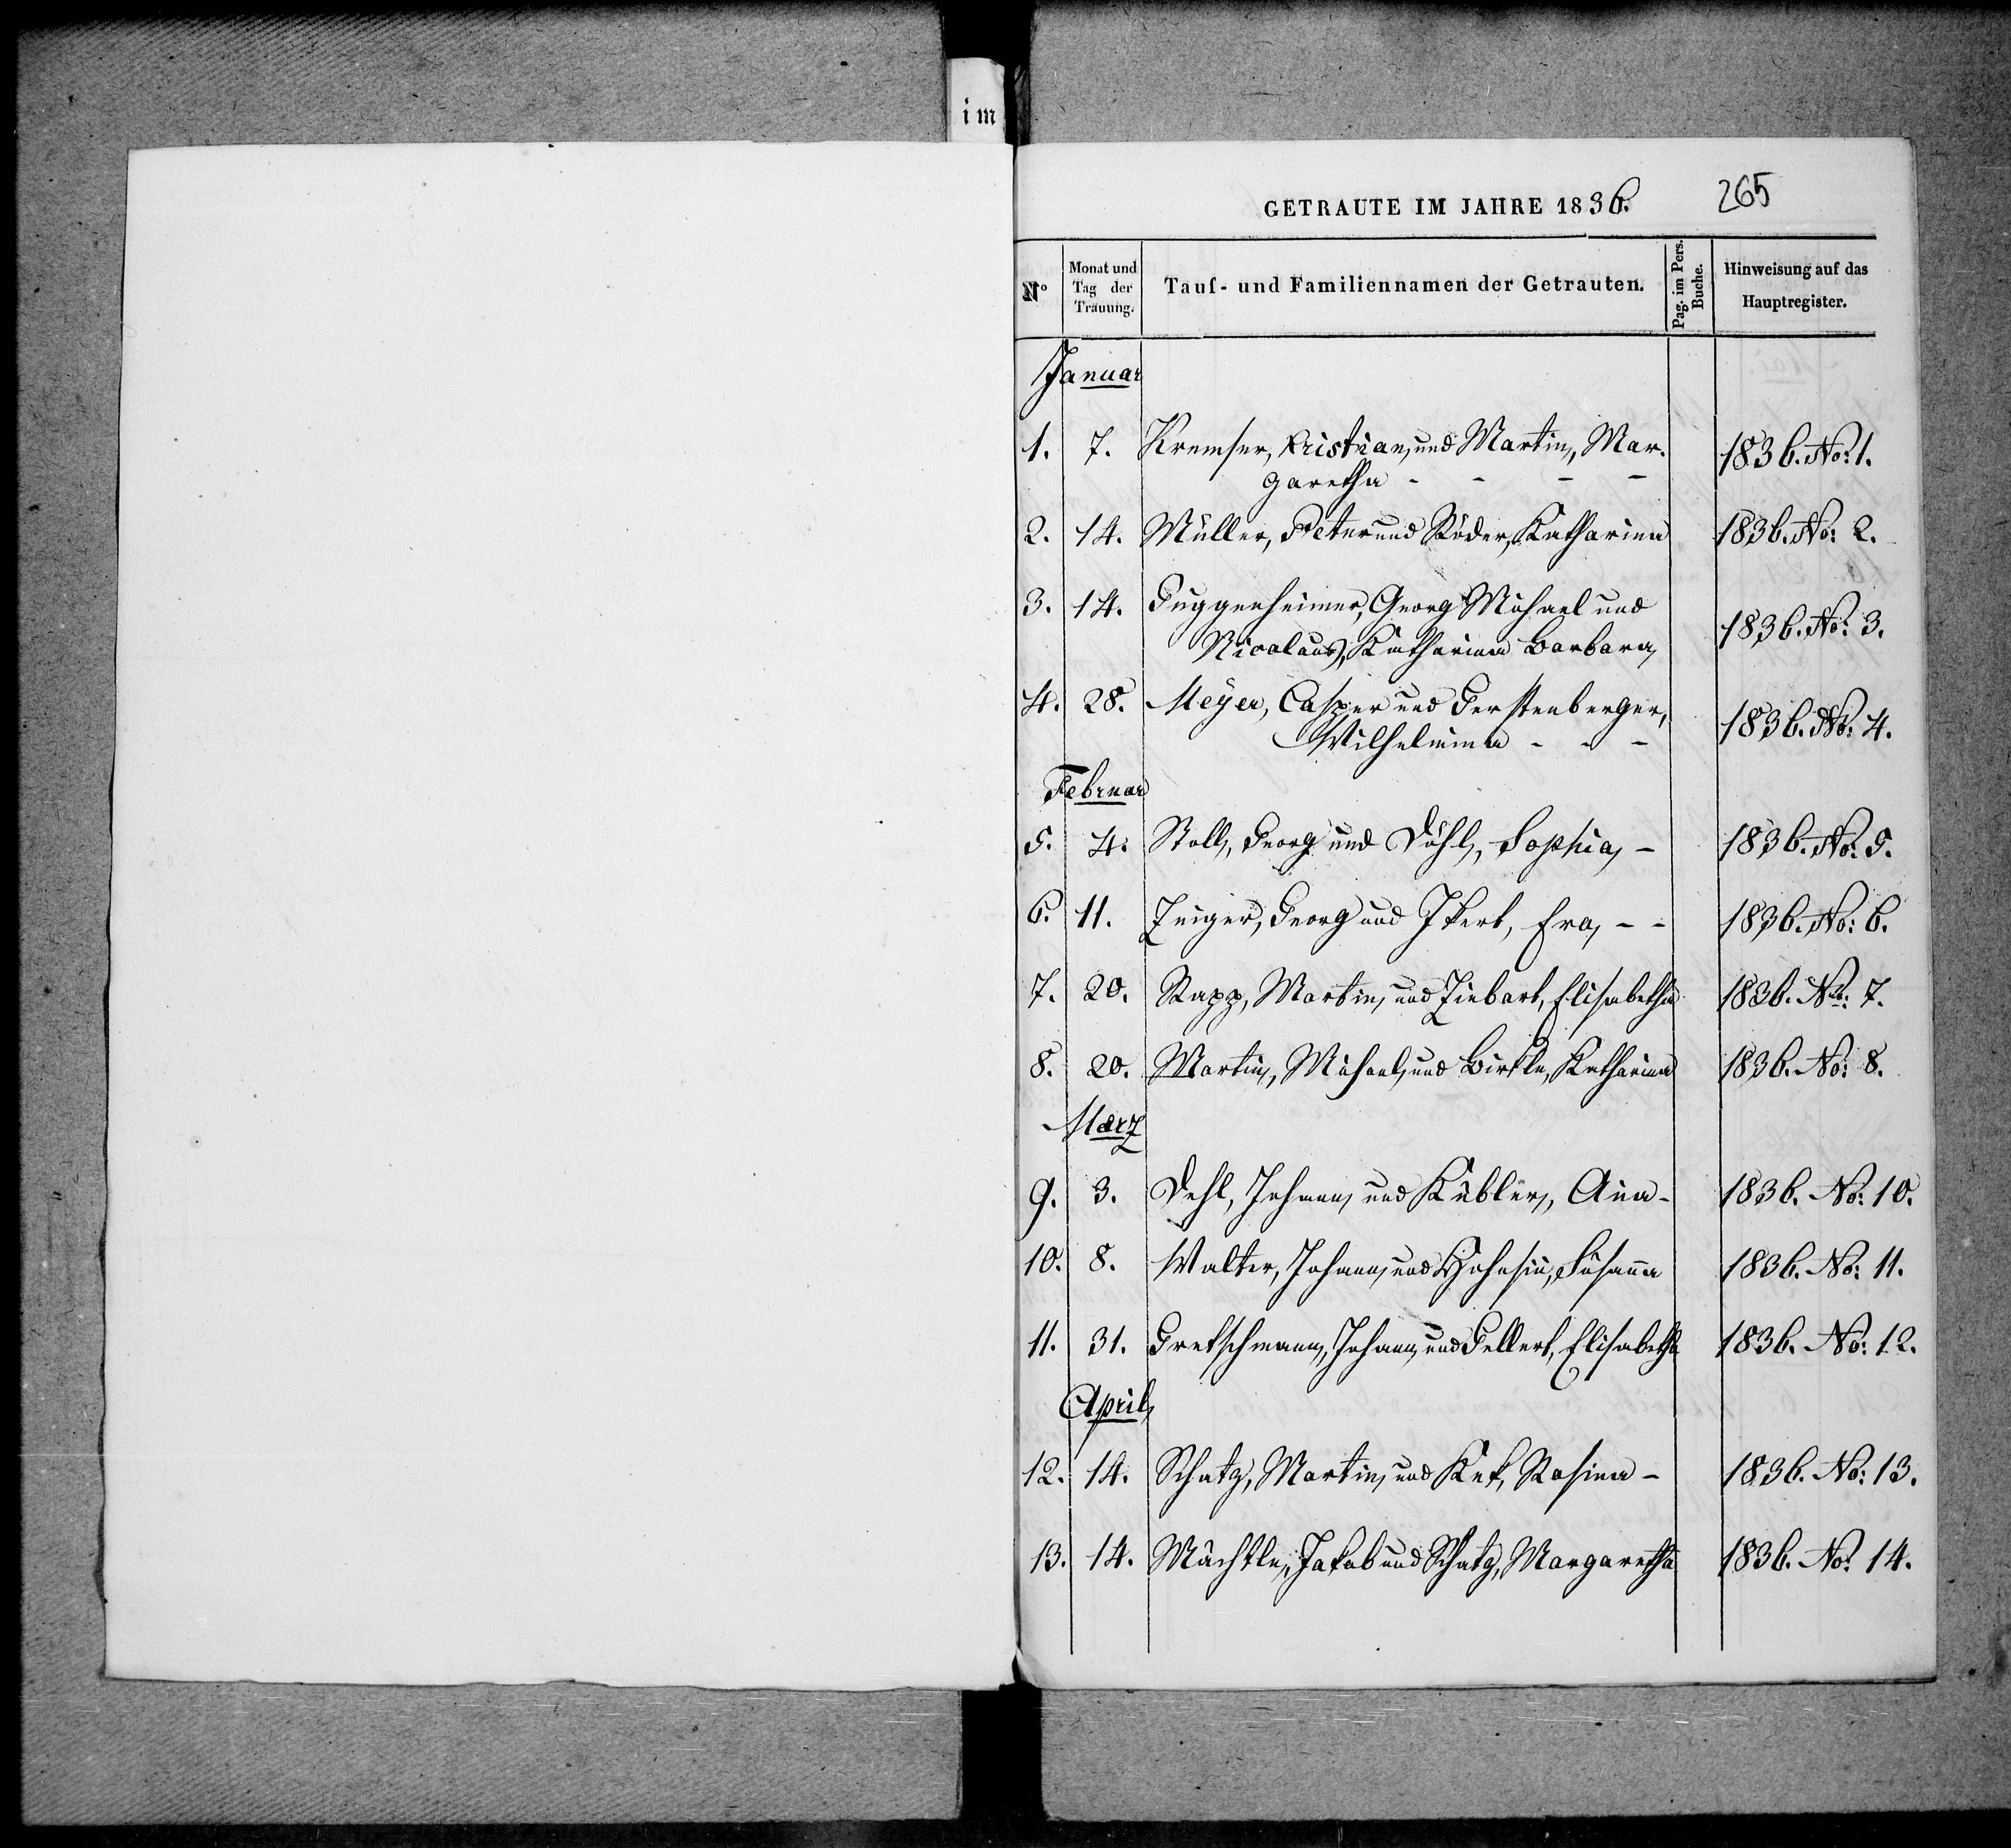 im
GETRAUTE IM JAHRE 1836.
265
Nº
Monat und Tag der Trauung.
Tauf- und Familiennamen der Getrauten.
Pag. im Pers. Buche.
Hinweisung auf das Hauptregister.
Januar
1. 7. Kremser, Kristian, und Martin, Mar- 1836. No: 1.
garetha - - - -
2. 14. Müller, Peter und Röder, Katharina 1836. No: 2.
3. 14. Guggenheimer, Georg Michael und
Nicolaus, Katharina Barbara, 1836. No: 3.
4. 28. Meyer, Casper und Gerstenberger,
Wilhelmina - - - 1836. No: 4.
Februar
5. 4. Stoll, Georg und Döhl, Sophia, - 1836. No: 5.
6. 11. Zeiger, Georg und Ikert, Eva, - - 1836. No: 6.
7. 20. Rapp, Martin, und Ziebart, Elisabetha 1836. No: 7.
8. 20. Martin, Michael, und Birkle, Katharina 1836. No: 8.
März
9. 3. Dehl, Johann, und Kübler, Anna - 1836. No: 10.
10. 8. Walter, Johann, und Susanna 1836. No: 11.
11. 31. Gretschmann, Johann, und Gellert, Elisabetha 1836. No: 12.
April
12. 14. Schatz, Martin, und Kek, Rosina - 1836. No: 13.
13. 14. Mächtle, Jakob und Schatz, Margaretha 1836. No: 14.